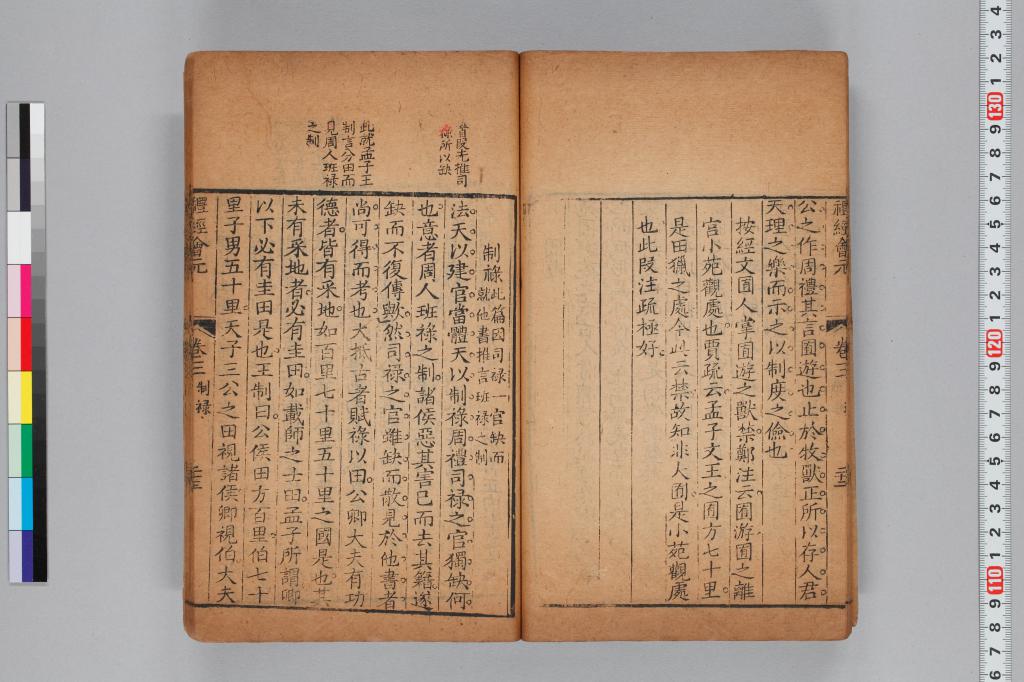 禮經會元
卷三
公之作周禮其言囿遊也止於牧獸正所以存人君
天理之樂而示之以制度之儉也
按經文囿人掌囿遊之獸禁鄭注云囿游囿之離
宮小苑觀處也賈疏云孟子文王之囿方七十里
是田獵之處今此云禁故知非人囿是小苑觀處
也此段注疏極好
制祿
此篇因司祿一官缺而
就他書推言班祿之制
法天以建官當體天以制祿周禮司祿之官獨缺何
也意者周人班祿之制諸侯惡其害已而去其籍遂
缺而不復傳歟然司祿之官雖缺而散見於他書者
尚可得而考也大抵古者賦祿以田公卿大夫有功
德者皆有采地如百里七十里五十里之國是也其
未有采地者必有圭田如載師之士田孟子所謂卿
以下必有圭田是也王制曰公侯田方百里伯七十
里子男五十里天子三公之田視諸侯卿視伯大夫
首段先推司
祿所以缺
此就孟子王
制言分田而
見周人班祿
之制
禮經會元
卷三
制祿